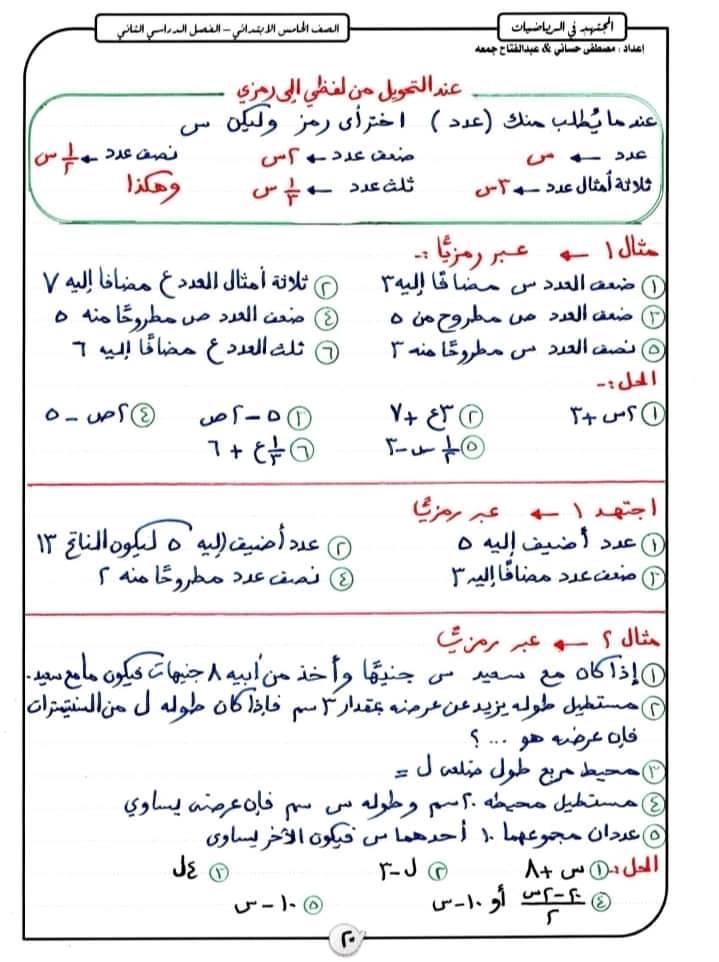 المجتهد في الرياضيات
الصف الخامس الابتدائي – الفصل الدراسي الثاني
إعداد : مصطفى حساني & عبدالفتاح جمعه
عند التحويل من لفظي إلى رمزي
عندما يُطلب منك (عدد) اختر أى رمز وليكن س
عدد ← س ضعف عدد ← ٢س نصف عدد ← ١/٢ س
ثلاثة أمثال عدد ← ٣س ثلث عدد ← ١/٣ س وهكذا
مثال ١ ← عبر رمزيًا :-
① ضعف العدد س مضافًا إليه ٣ ② ثلاثة أمثال العدد ع مضافًا إليه ٧
③ ضعف العدد ص مطروح من ٥ ④ ضعف العدد ص مطروحًا منه ٥
⑤ نصف العدد س مطروحًا منه ٣ ⑥ ثلث العدد ع مضافًا إليه ٦
الحل :-
① ٢س + ٣ ② ٣ع + ٧ ③ ٥ – ٢ص ④ ٢ص – ٥
⑤ ١/٢ س – ٣ ⑥ ١/٣ ع + ٦
اجتهد ١ ← عبر رمزيًا
① عدد أضيف إليه ٥ ② عدد أضيف إليه ٥ ليكون الناتج ١٣
③ ضعف عدد مضافًا إليه ٣ ④ نصف عدد مطروحًا منه ٢
مثال ٢ ← عبر رمزيًا
① إذا كان مع سعيد س جنيهًا وأخذ من أبيه ٨ جنيهات فيكون ما مع سعيد.
② مستطيل طوله يزيد عن عرضه بمقدار ٣ سم فإذا كان طوله ل من السنتيمترات
فإن عرضه هو ... ؟
③ محيط مربع طول ضلعه ل =
④ مستطيل محيطه ٢٠ سم وطوله س سم فإن عرضه يساوي
⑤ عددان مجموعهما ١٠ أحدهما س فيكون الآخر يساوى
الحل :- ① س + ٨ ② ل – ٣ ③ ٤ل
④ ٢٠ – ٢س / ٢ أو ١٠ – س ⑤ ١٠ – س
٢٠